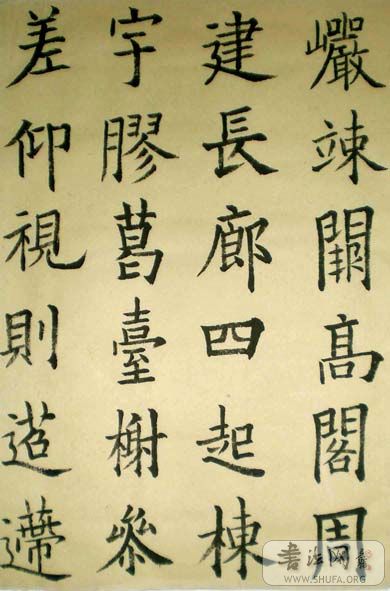 巗竦闕髙閣周
建長廊四起棟
宇膠葛臺榭叅
差仰視則迢遰
書法网
WWW.SHUFA.ORG